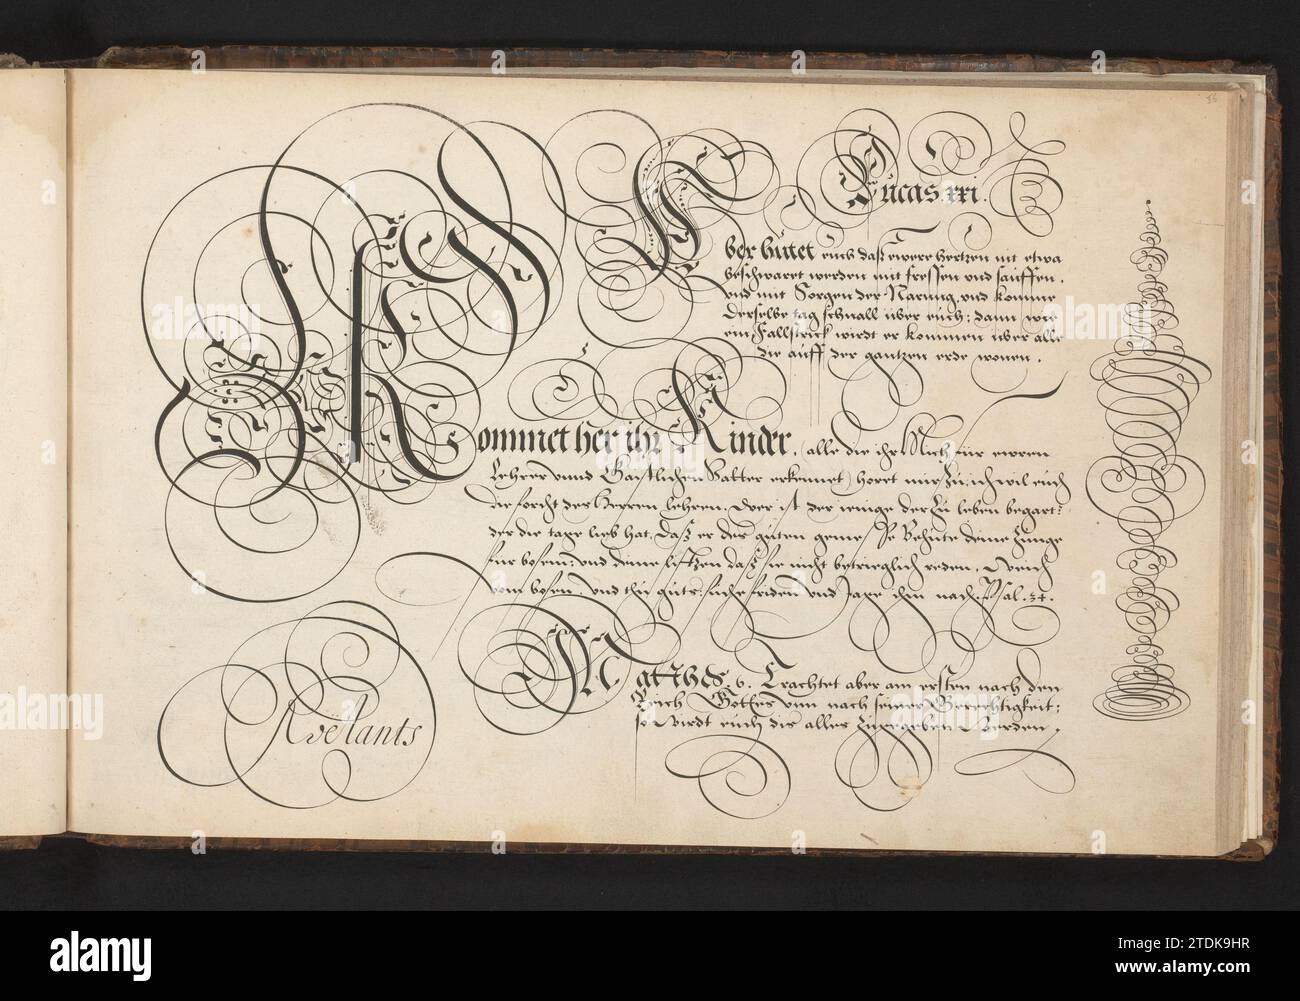 Lucas xxi.
ber hütet euch daß ewere hertzen nit etwa
beschwaret werden mit fressen und sauffen,
vnd mit Sorgen der Narung, vnd komme
derselbe tag schnall uber euch: dann wie
ein Fallstrick wirdt er kommen uber alle
die auff der gantzen erde wonen.
Kommet her ihr Kinder, alle die ihr Mich für ewren
Lehrer vnnd Gaistlichen Vatter erkennet) horet mir zu, ich wil euch
die forcht des Herren lehren. Wer ist der ienige der zu leben begart:
der die tage lieb hat, daß er der guten geniesse Behute deine Zunge
für bosem: vnd deine lifftzen daß sie nicht betrieglich reden. Weich
vom bosen, vnd thu guts: suche friden vnd Jage ihm nach. Psal. 34.
Matthes. 6. Trachtet aber am ersten nach dem
Reich Gottes vnn nach seiner Gerechtigkeit:
so Wirdt euch dis alles zugegeben Werden.
Roelants
56
alamy
Image ID: 2TDK9HR
www.alamy.com